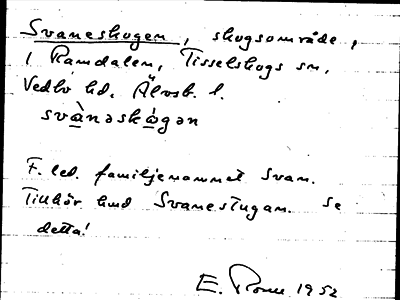 Svaneskogen, skogsområde,
i Ramdalen, Tisselskogs sn,
Vedbo hd. Älvsb. l.
svànəskågən
F. led. familjenamnet Svan.
Tillhör hmd Svanestugan. se
detta!
E. 1952